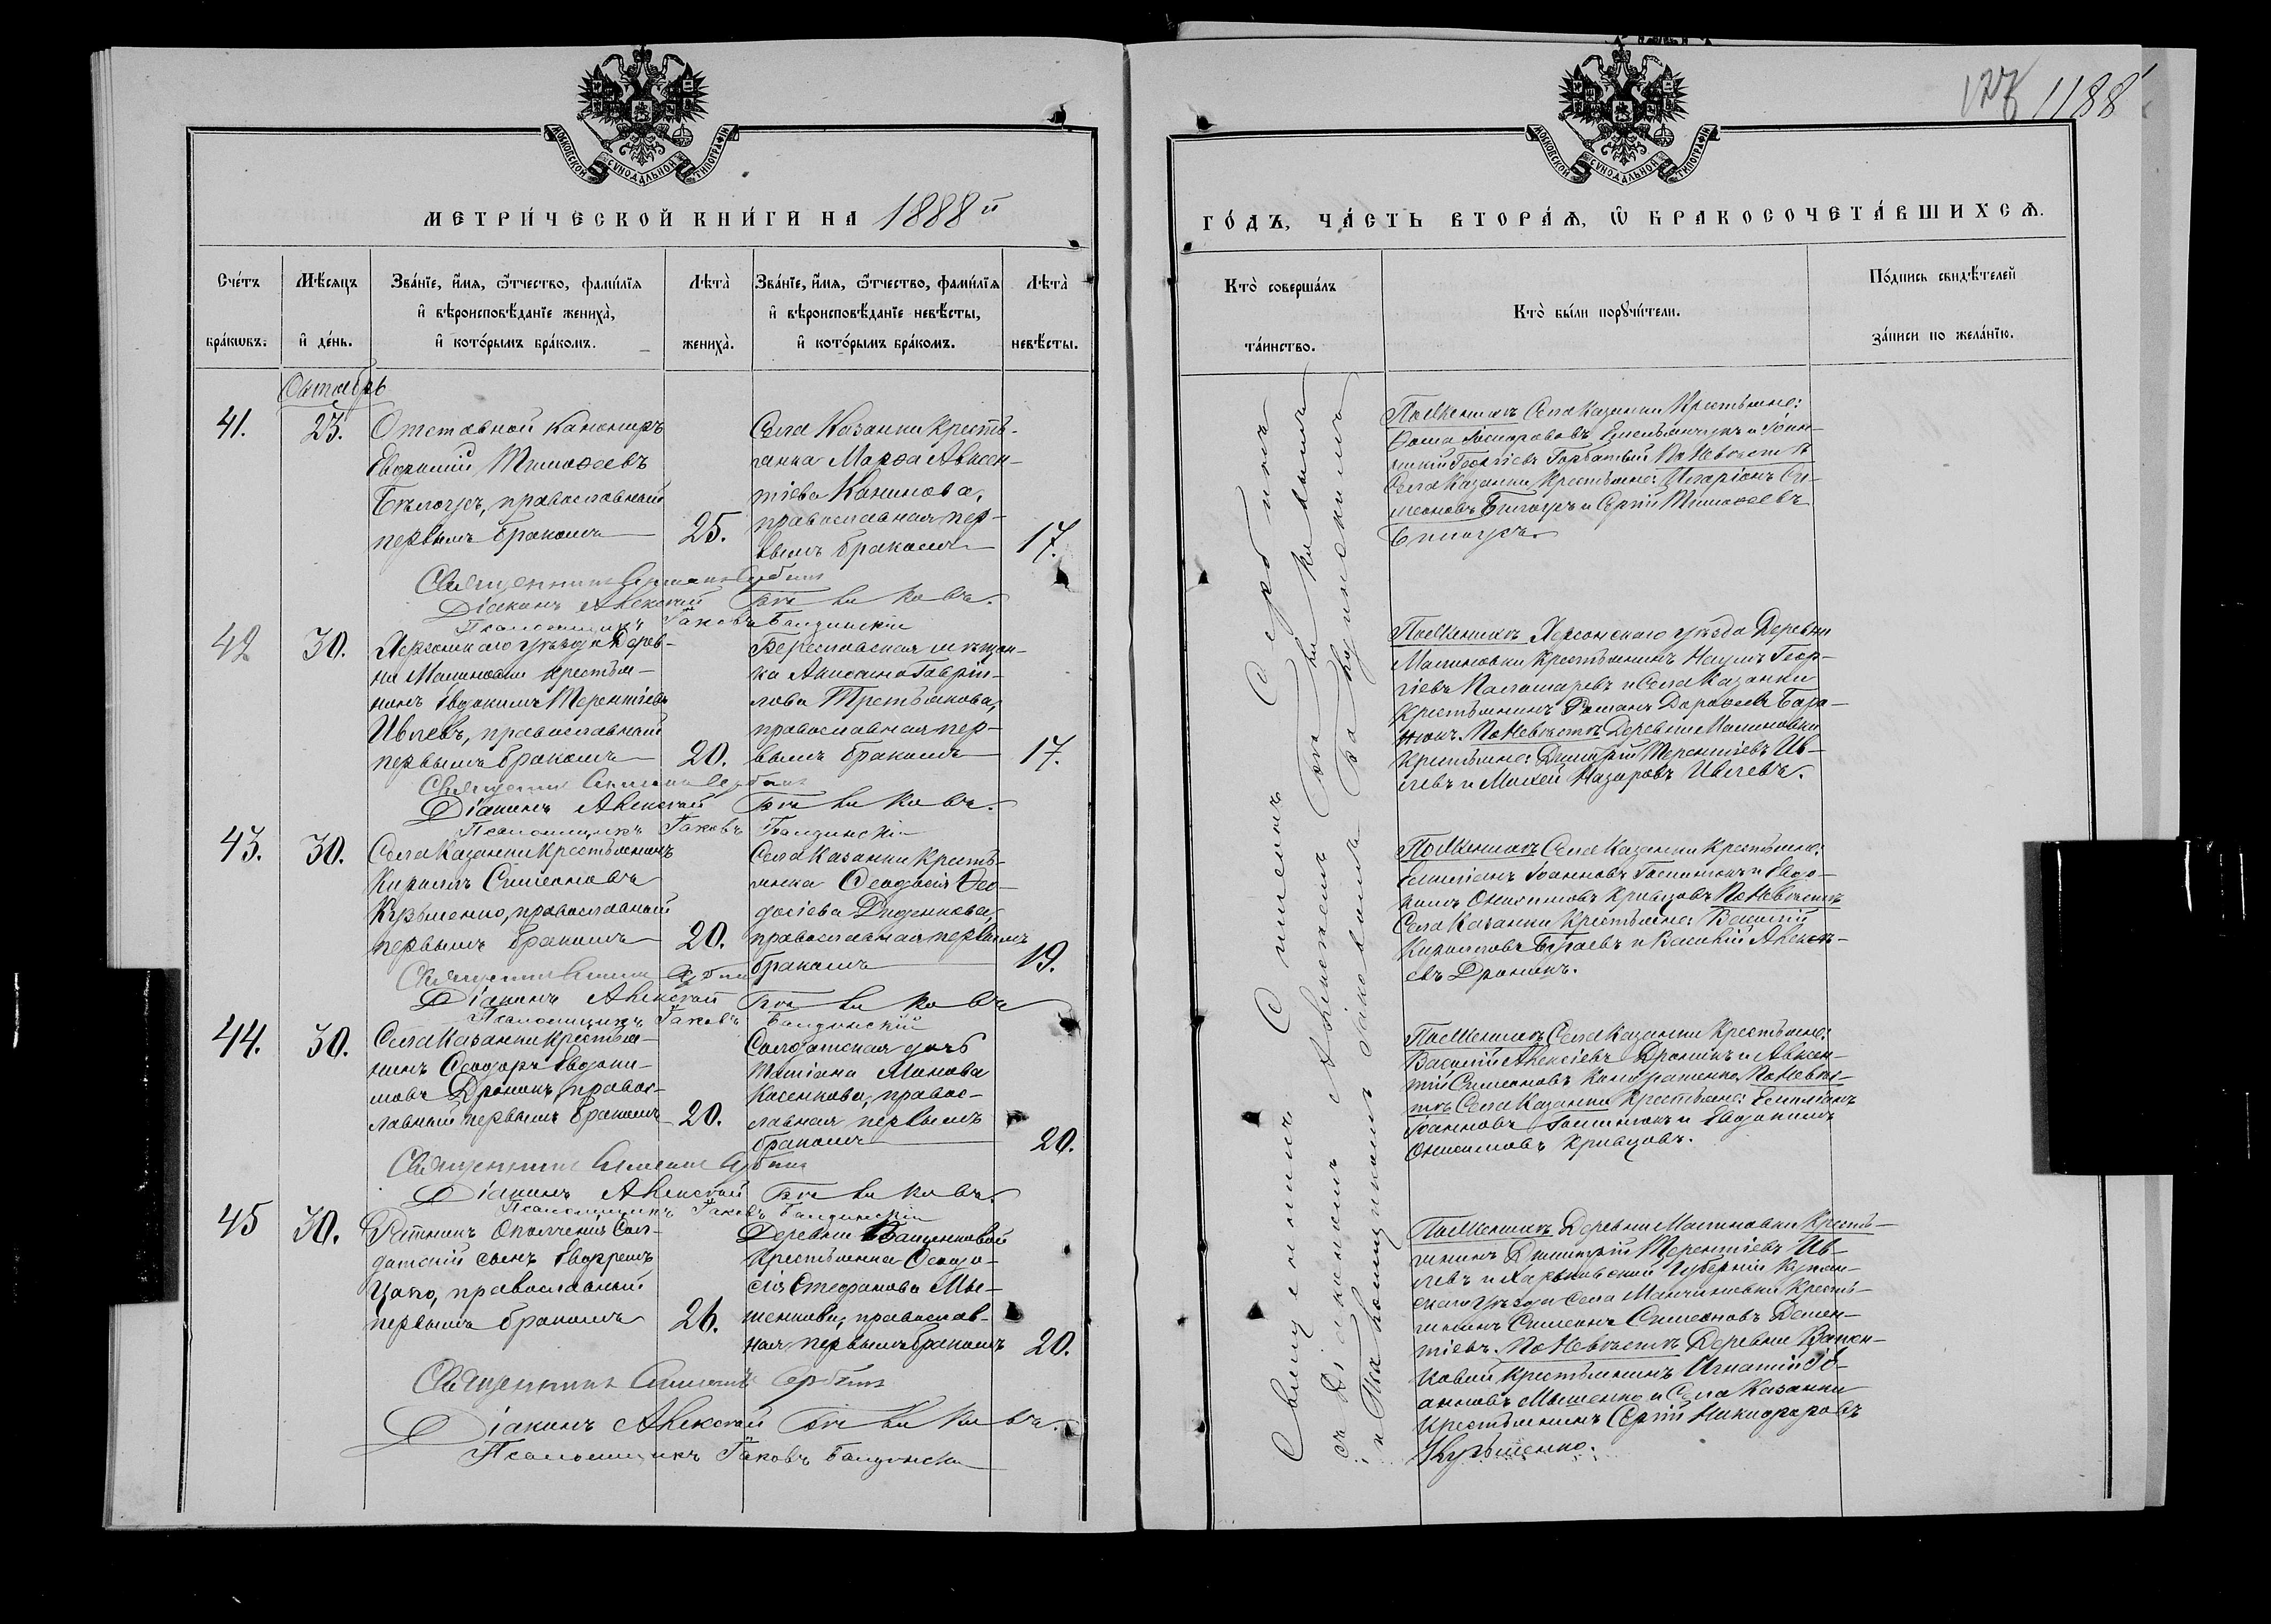 МОСКОВСКОЙ СУНОДАЛЬНОЙ ТИПОГРАФІИ
МЕТРИ́ЧЕСКОЙ КНИ́ГИ НА 1888й
Сче́тъ бра́кѡвъ.
Мѣ́сяцъ и де́нь.
Зва́нїе, и́мя, ѻ҆́тчество, фами́лїя
и вѣроисповѣ́данїе жениха̀,
и кото́рымъ бра́комъ.
Лѣта̀ жениха̀.
Зва́нїе, и́мя, ѻ҆́тчество, фами́лїя
и вѣроисповѣ́данїе невѣ́сты,
и кото́рымъ бра́комъ.
Лѣта̀ невѣ́сты.
Октябрь
41.
23.
Отставной Канониръ
Евфимій Тимофеевъ
Бѣлоусъ, православный
первымъ бракомъ
25.
Села Казанки кресть-
янка Марфа Авксен-
тіева Канинова,
православная пер-
вымъ бракомъ
17.
Священникъ Симеонъ Сербинъ
Діаконъ Алексей
Псаломщикъ Іаковъ
42
30.
Херсонскаго уѣзда Дерев-
ни Малиновки крестья-
нинъ Евдокимъ Терентіевъ
Ивлевъ, православный
первымъ бракомъ
20.
Бериславская мѣщан-
ка Акилина Гаврiи-
лова Третьякова,
православная пер-
вымъ бракомъ
17.
Священникъ Симеонъ Сербинъ
Діаконъ Алексей
Псаломщикъ Іаковъ
43.
30.
Села Казанки Крестьянинъ
Кириллъ Симеоновъ
Кузьменко, православный
первымъ бракомъ
20.
Села Казанки Кресть-
янка Феодосія Фео-
досіева Диденкова,
православная первымъ
бракомъ
19.
Священникъ Симеонъ Сербинъ
Діаконъ Алексей
Псаломщикъ Іаковъ
44.
30.
Села Казанки Крестья-
нинъ Феодоръ Евдоки-
мовъ Дронюкъ, правос-
лавный первымъ бракомъ
20.
Солдатская дочь
Татіана Минова
Косенкова, правос-
лавная первымъ
бракомъ
20.
Священникъ Симеонъ Сербинъ
Діаконъ Алексей
Псаломщикъ Іаковъ
45
30.
Ратникъ Ополченія Сол-
датскій сынъ Евфремъ
Цапо, православный
первымъ бракомъ
26.
Деревни
Крестьянка Феодо-
сія Стефанова Мы-
шенкова, православ-
ная первымъ бракомъ
20.
Священникъ Симеонъ Сербинъ
Діаконъ Алексей
Псаломщикъ Іаковъ
1188
МОСКОВСКОЙ СУНОДАЛЬНОЙ ТИПОГРАФІИ
ГО́ДЪ, ЧА́СТЬ ВТОРА́Я, Ѡ БРАКОСОЧЕТА́ВШИХСЯ.
Кто̀ соверша́лъ
та́инство.
Кто̀ бы́ли порꙋчи́тели.
По́дпись свидѣ́телей
за́писи по жела́нїю.
Священникъ Симеонъ Сербинъ
съ Діакономъ Алексеемъ
и Псаломщикомъ Іаковомъ
По Женихѣ Села Казанки Крестьяне:
Георгіевъ Горбатый По Невѣстѣ
Села Казанки Крестьяне: Иларіонъ Си-
меоновъ Бѣлоусъ и Сергій Тимофеевъ
Бѣлоусъ.
По Женихѣ Херсонскаго уѣзда Деревни
Малиновки Крестьянинъ Наумъ Геор-
гіевъ Паламаревъ и Села Казанки
Крестьянинъ Романъ Дорофеевъ Бара-
нюкъ. По Невѣстѣ Деревни Малиновки
Крестьяне: Димитрій Терентіевъ Ив-
левъ и Михей Назаровъ Ивлевъ.
По Женихѣ Села Казанки Крестьяне:
Емиліанъ Іоанновъ и Евдо-
кимъ Онисимовъ Кривцовъ По Невѣстѣ
Села Казанки Крестьяне: Василій
Кирилловъ и Василій Алексі-
евъ Дронюкъ.
По Женихѣ Села Казанки Крестьяне:
Василій Алексіевъ Дронюкъ и Авксен-
тій Симеоновъ Кондратенко По Невѣс-
тѣ Села Казанки Крестьяне: Емиліанъ
Іоанновъ и Евдокимъ
Онисимовъ Кривцовъ.
По Женихѣ Деревни Малиновки Кресть-
янинъ Димитрій Терентіевъ Ив-
левъ и Харьковской Губерніи Купян-
скаго уѣзда Села Кресть-
янинъ Симеонъ Симеоновъ Демен-
тіевъ. По Невѣстѣ Деревни
Крестьянинъ Игнатій Іо-
анновъ Мышенко и Села Казанки
Крестьянинъ Сергій Никифоровъ
Кузьменко.